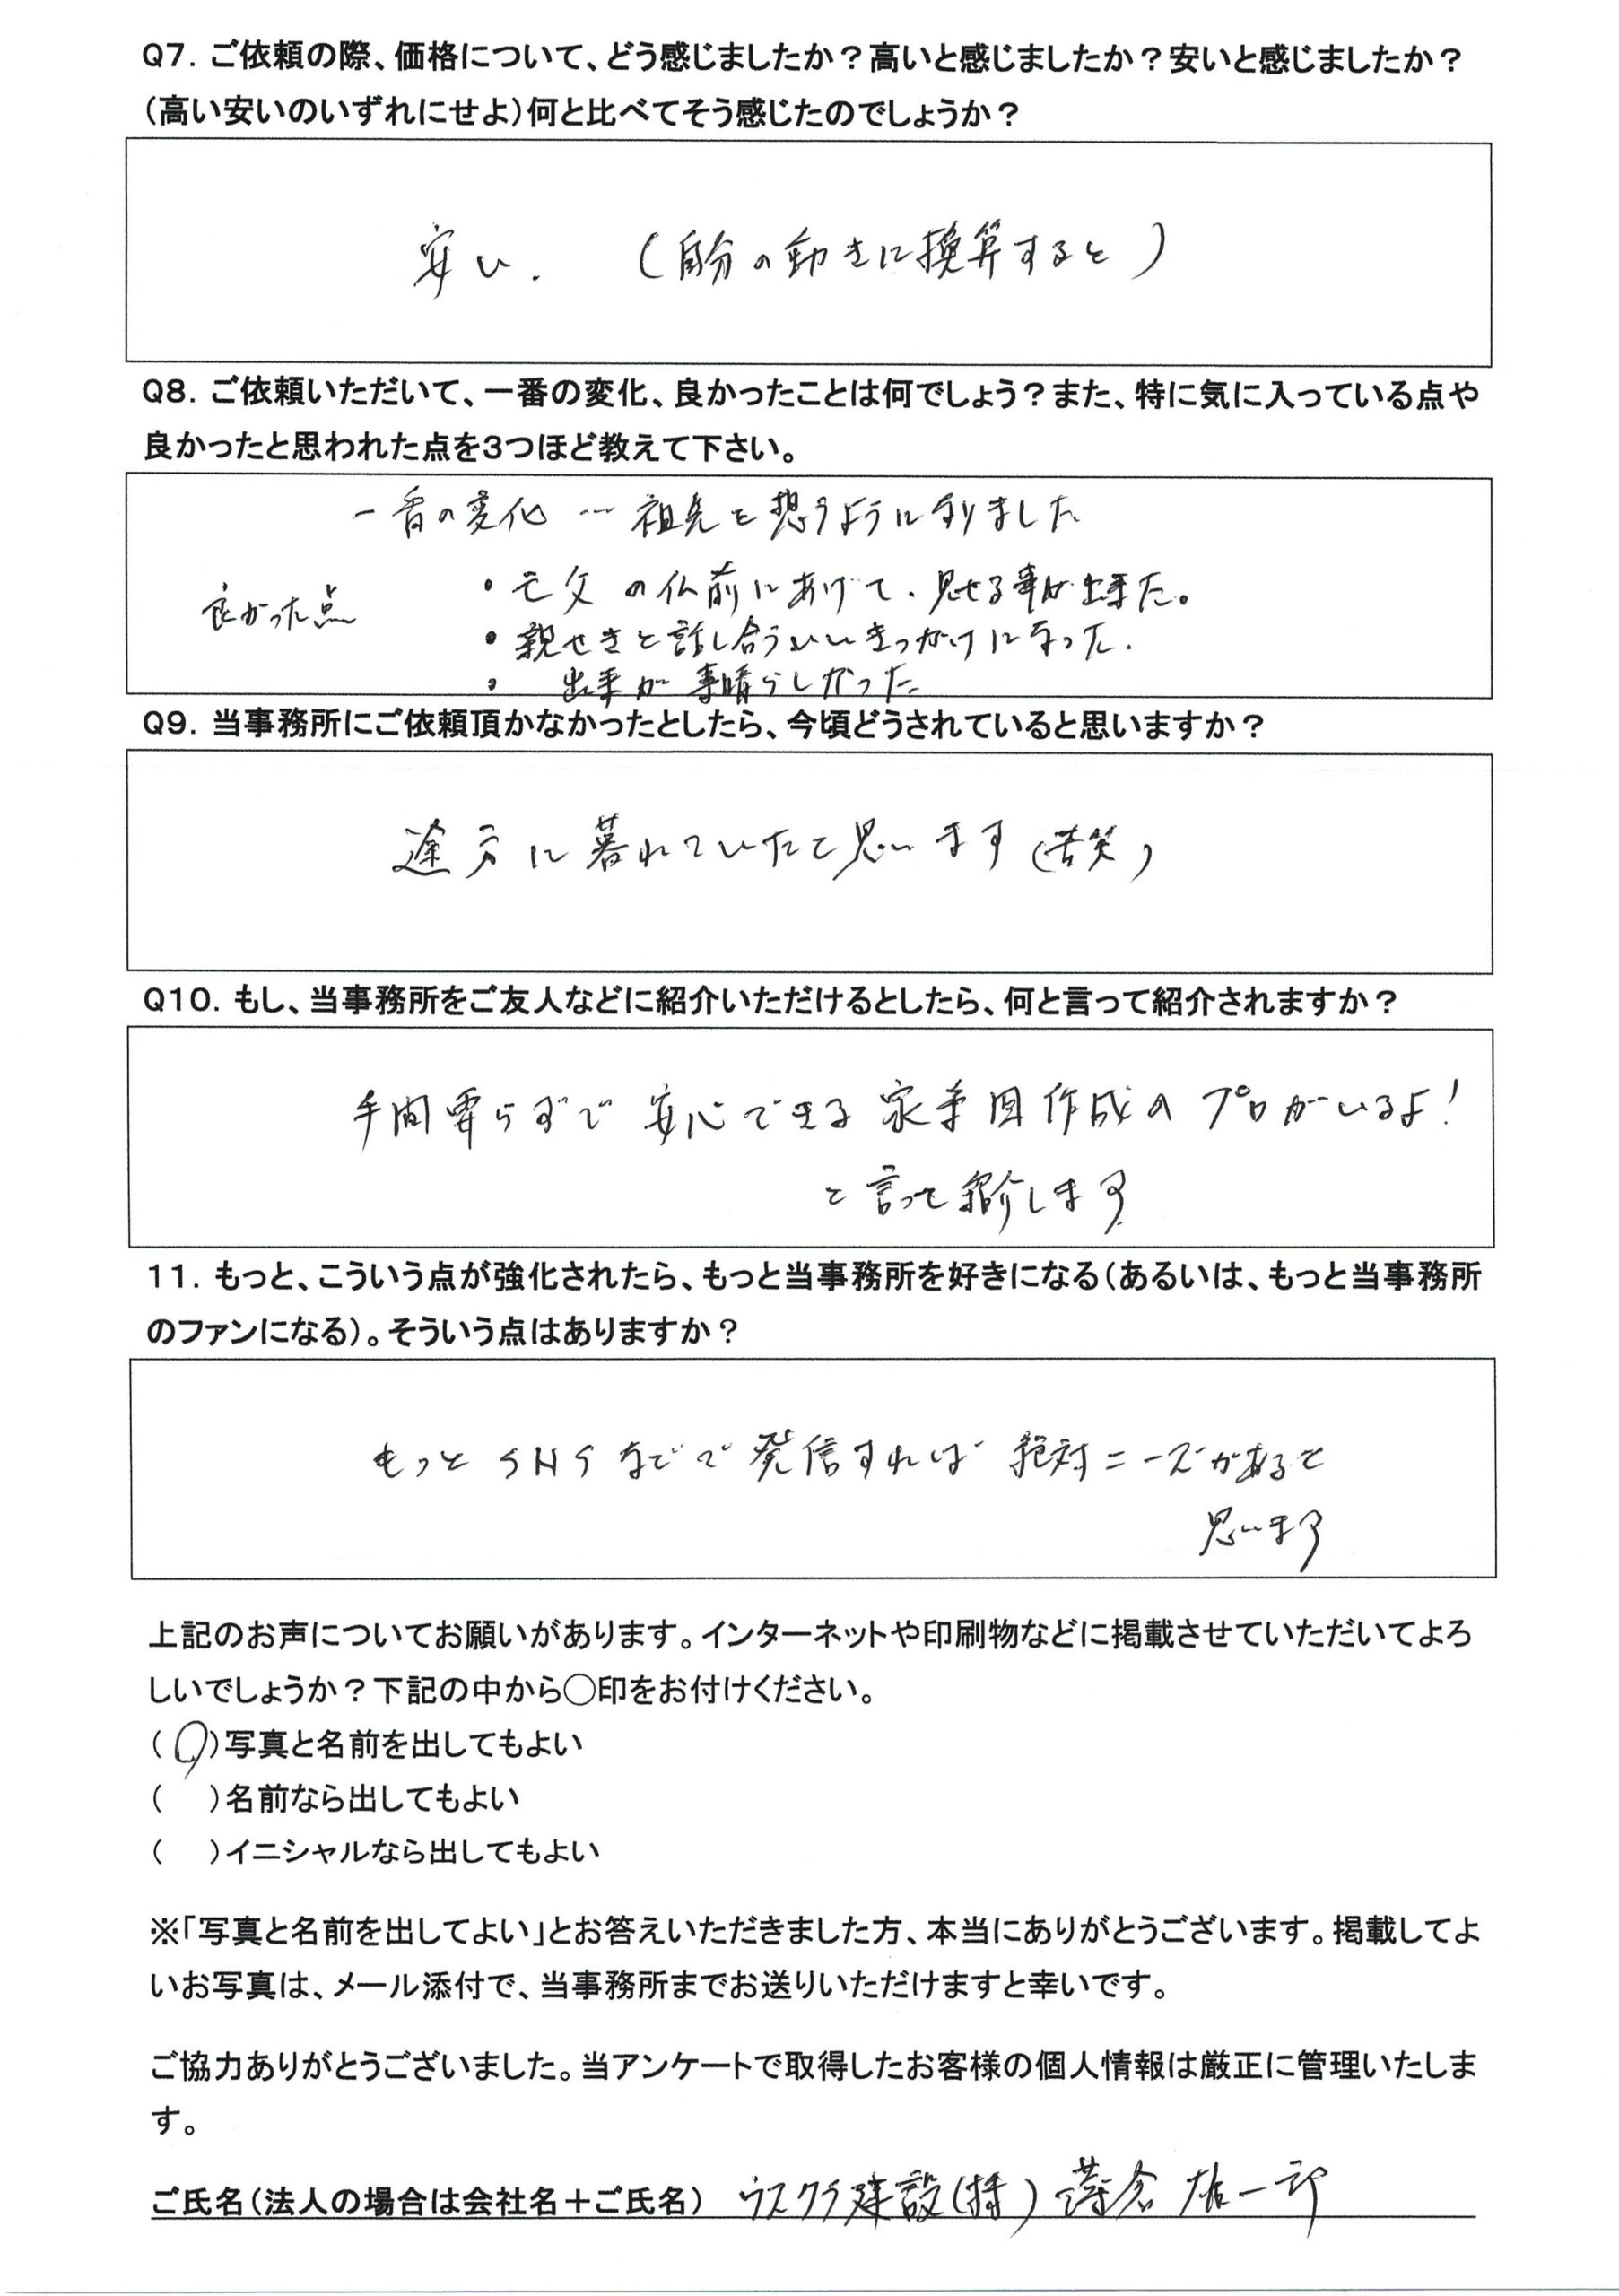 Q7. ご依頼の際、価格について、どう感じましたか？高いと感じましたか？安いと感じましたか？
（高い安いのいずれにせよ）何と比べてそう感じたのでしょうか？
安い. （自分の動きに換算すると）
Q8. ご依頼いただいて、一番の変化、良かったことは何でしょう？また、特に気に入っている点や
良かったと思われた点を3つほど教えて下さい。
一番の変化 … 祖先を想うようになりました
良かった点
・亡父の仏前にあげて、見せる事が出来た。
・親せきと話し合ういいきっかけになった.
・ 出来が素晴らしかった
Q9. 当事務所にご依頼頂かなかったとしたら、今頃どうされていると思いますか？
途方に暮れていたと思います（苦笑）
Q10. もし、当事務所をご友人などに紹介いただけるとしたら、何と言って紹介されますか？
手間要らずで安心できる家系図作成のプロがいるよ！
と言って紹介します
11. もっと、こういう点が強化されたら、もっと当事務所を好きになる（あるいは、もっと当事務所
のファンになる）。そういう点はありますか？
もっとSNSなどで発信すれば絶対ニーズがあると
思います
上記のお声についてお願いがあります。インターネットや印刷物などに掲載させていただいてよろ
しいでしょうか？下記の中から○印をお付けください。
（○）写真と名前を出してもよい
（　）名前なら出してもよい
（　）イニシャルなら出してもよい
※「写真と名前を出してよい」とお答えいただきました方、本当にありがとうございます。掲載してよ
いお写真は、メール添付で、当事務所までお送りいただけますと幸いです。
ご協力ありがとうございました。当アンケートで取得したお客様の個人情報は厳正に管理いたしま
す。
ご氏名（法人の場合は会社名＋ご氏名） ウスクラ建設（株） 薄倉 雄一郎